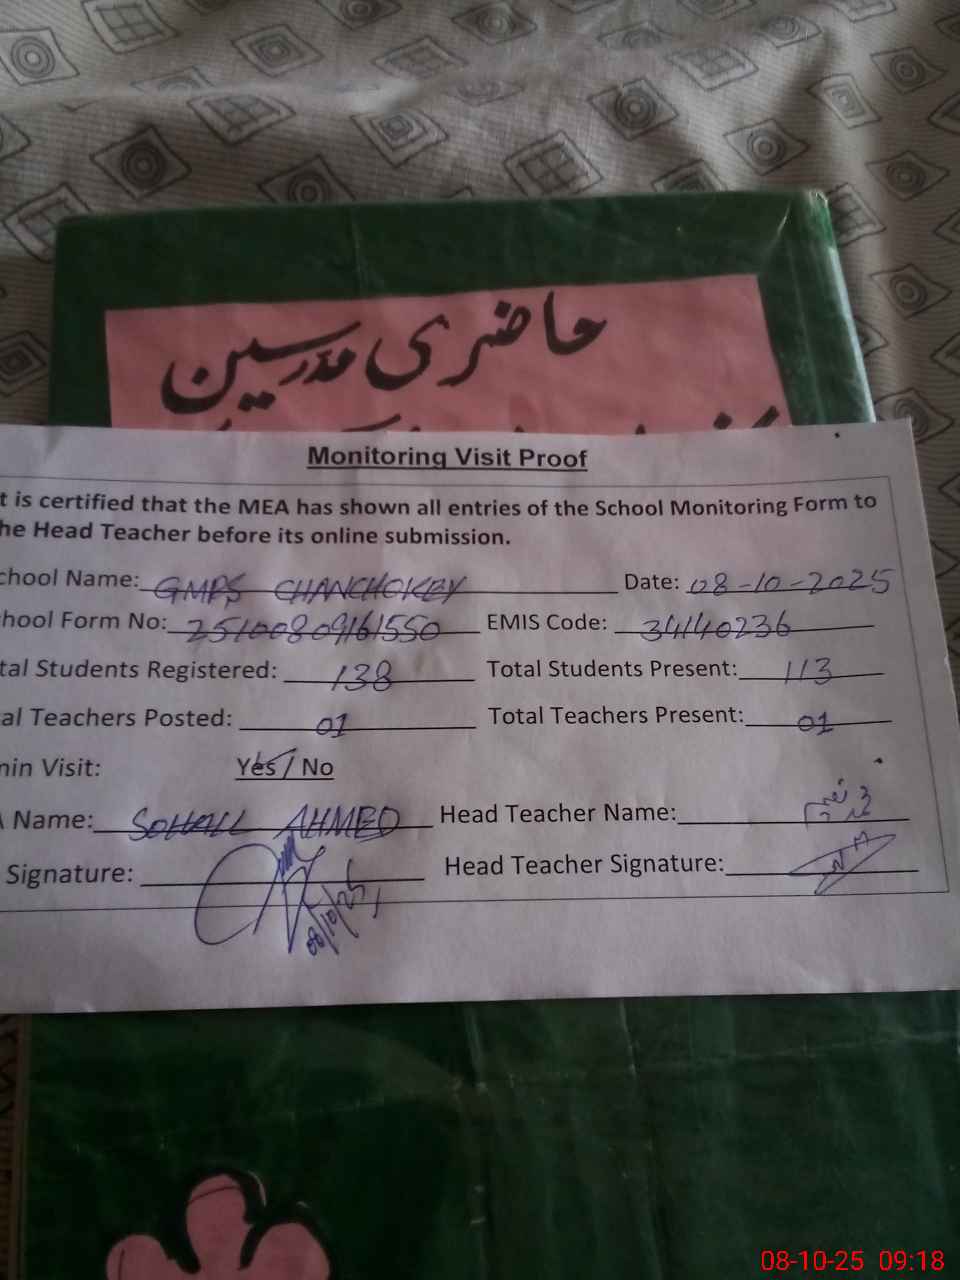 حاضری مدرسین
Monitoring Visit Proof
t is certified that the MEA has shown all entries of the School Monitoring Form to
he Head Teacher before its online submission.
chool Name: GMPS CHANCHOKEY Date: 08-10-2025
hool Form No: 25100809161550 EMIS Code: 34140236
tal Students Registered: 138 Total Students Present: 113
al Teachers Posted: 01 Total Teachers Present: 01
min Visit: Yes / No
A Name: SOHAIL AHMED Head Teacher Name:
Signature: Head Teacher Signature:
08/10/25
08-10-25 09:18